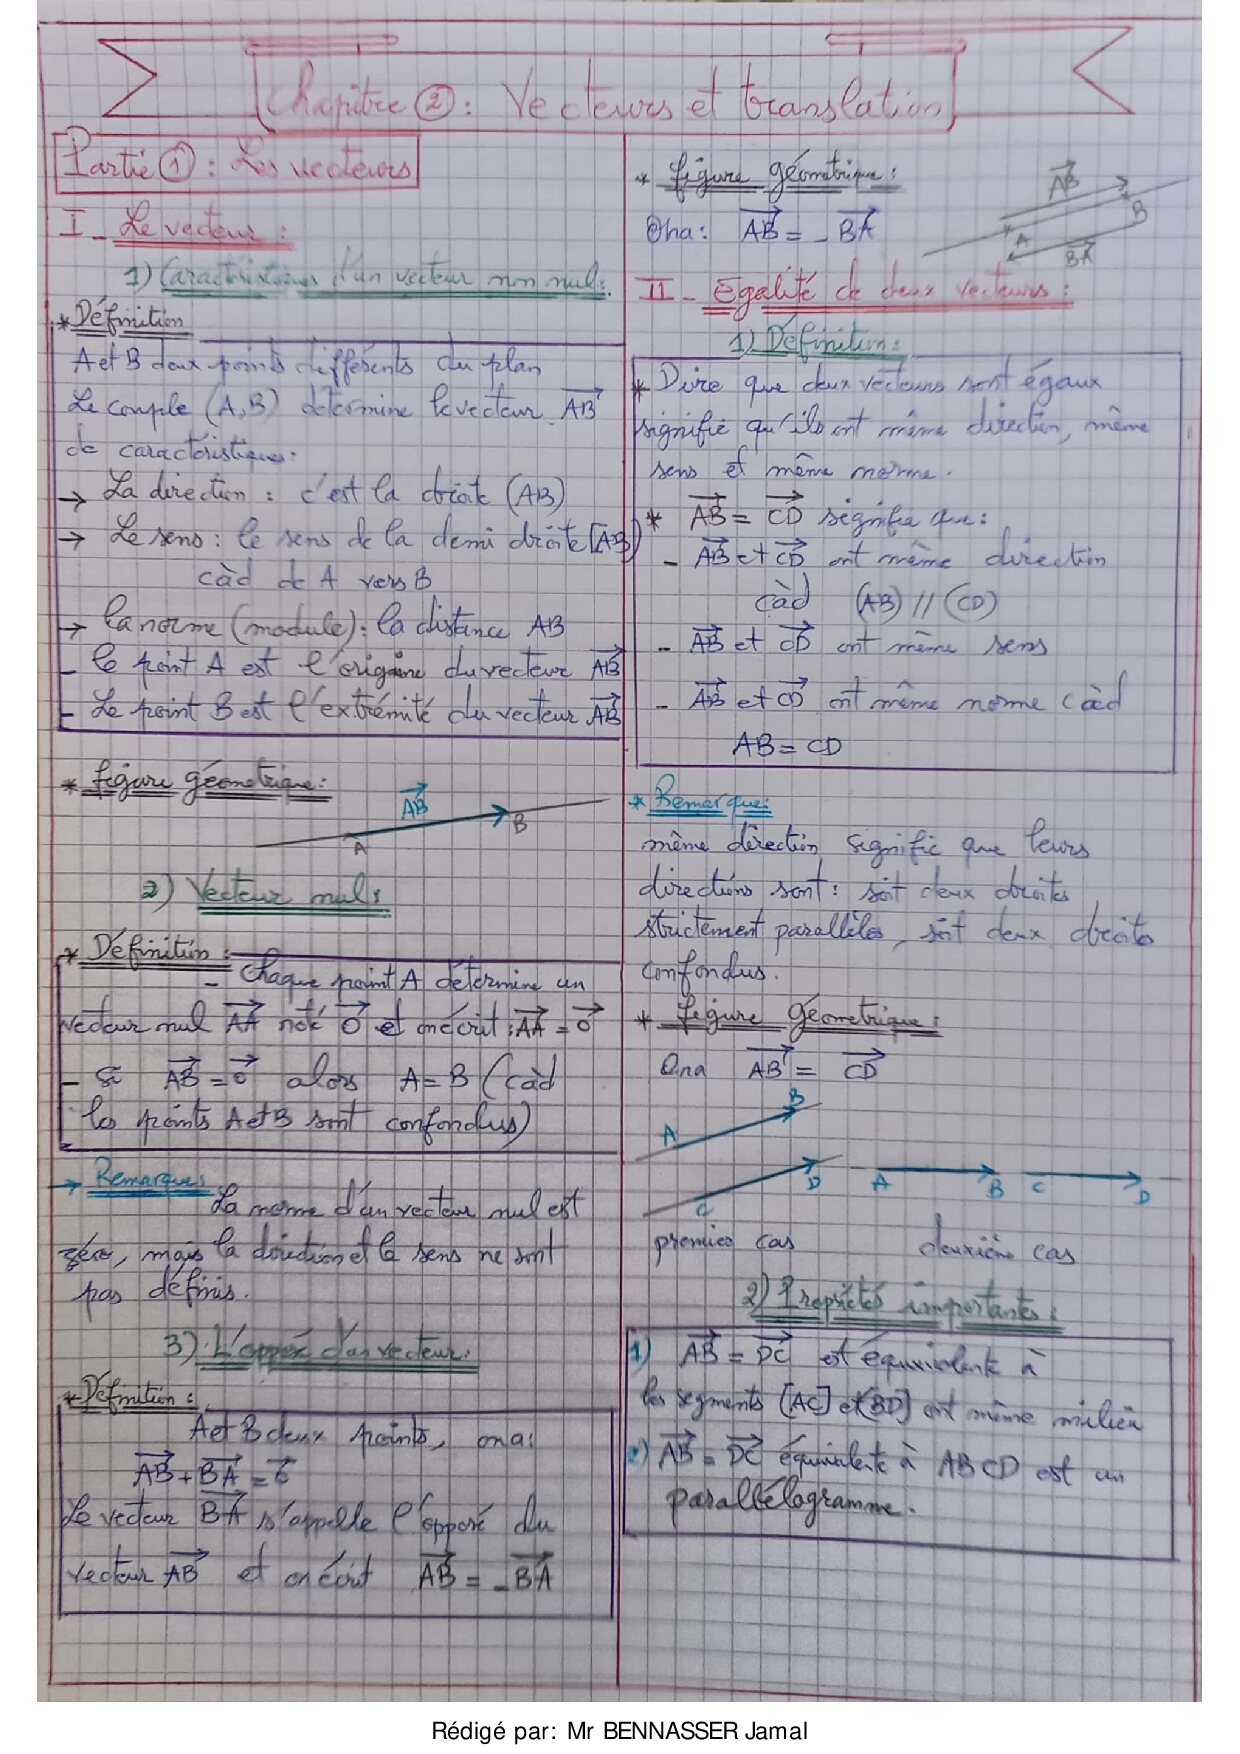 Chapitre ② : Vecteurs et translation
Partie ① : Les vecteurs
I - Le vecteur :
1) Caractéristiques d'un vecteur non nul :
* Définition
A et B deux points différents du plan
Le couple (A,B) détermine le vecteur \overrightarrow{AB}
de caractéristiques.
→ La direction : c'est la droite (AB)
→ Le sens : le sens de la demi droite [AB)
càd de A vers B
→ la norme (module) : la distance AB
- le point A est l'origine du vecteur \overrightarrow{AB}
- Le point B est l'extrémité du vecteur \overrightarrow{AB}
* figure géometrique :
\overrightarrow{AB}
A B
2) Vecteur nul :
* Définition :
- chaque point A détermine un
vecteur nul \overrightarrow{AA} noté \overrightarrow{0} et on écrit : \overrightarrow{AA} = \overrightarrow{0}
- Si \overrightarrow{AB} = \overrightarrow{0} alors A = B (càd
les points A et B sont confondus)
→ Remarque :
La norme d'un vecteur nul est
zéro, mais la direction et le sens ne sont
pas définis.
3) L'opposé d'un vecteur :
* Définition :
A et B deux points, on a :
\overrightarrow{AB} + \overrightarrow{BA} = \overrightarrow{0}
Le vecteur \overrightarrow{BA} s'appelle l'opposé du
vecteur \overrightarrow{AB} et on écrit \overrightarrow{AB} = -\overrightarrow{BA}
* figure géometrique :
\overrightarrow{AB}
On a : \overrightarrow{AB} = -\overrightarrow{BA}
A B
\overrightarrow{BA}
II - Egalité de deux vecteurs :
1) Définition :
* Dire que deux vecteurs sont égaux
signifie qu'ils ont même direction, même
sens et même norme.
* \overrightarrow{AB} = \overrightarrow{CD} signifie que :
- \overrightarrow{AB} et \overrightarrow{CD} ont même direction
càd (AB) // (CD)
- \overrightarrow{AB} et \overrightarrow{CD} ont même sens
- \overrightarrow{AB} et \overrightarrow{CD} ont même norme càd
AB = CD
* Remarque :
même direction signifie que leurs
directions sont : soit deux droites
strictement parallèles, soit deux droites
confondus.
* figure géometrique :
On a \overrightarrow{AB} = \overrightarrow{CD}
A B
C D
A B C D
premier cas deuxième cas
2) Propriétés importantes :
1) \overrightarrow{AB} = \overrightarrow{DC} est équivalente à
les segments [AC] et [BD] ont même milieu
2) \overrightarrow{AB} = \overrightarrow{DC} équivalente à ABCD est un
parallélogramme.
Rédigé par: Mr BENNASSER Jamal